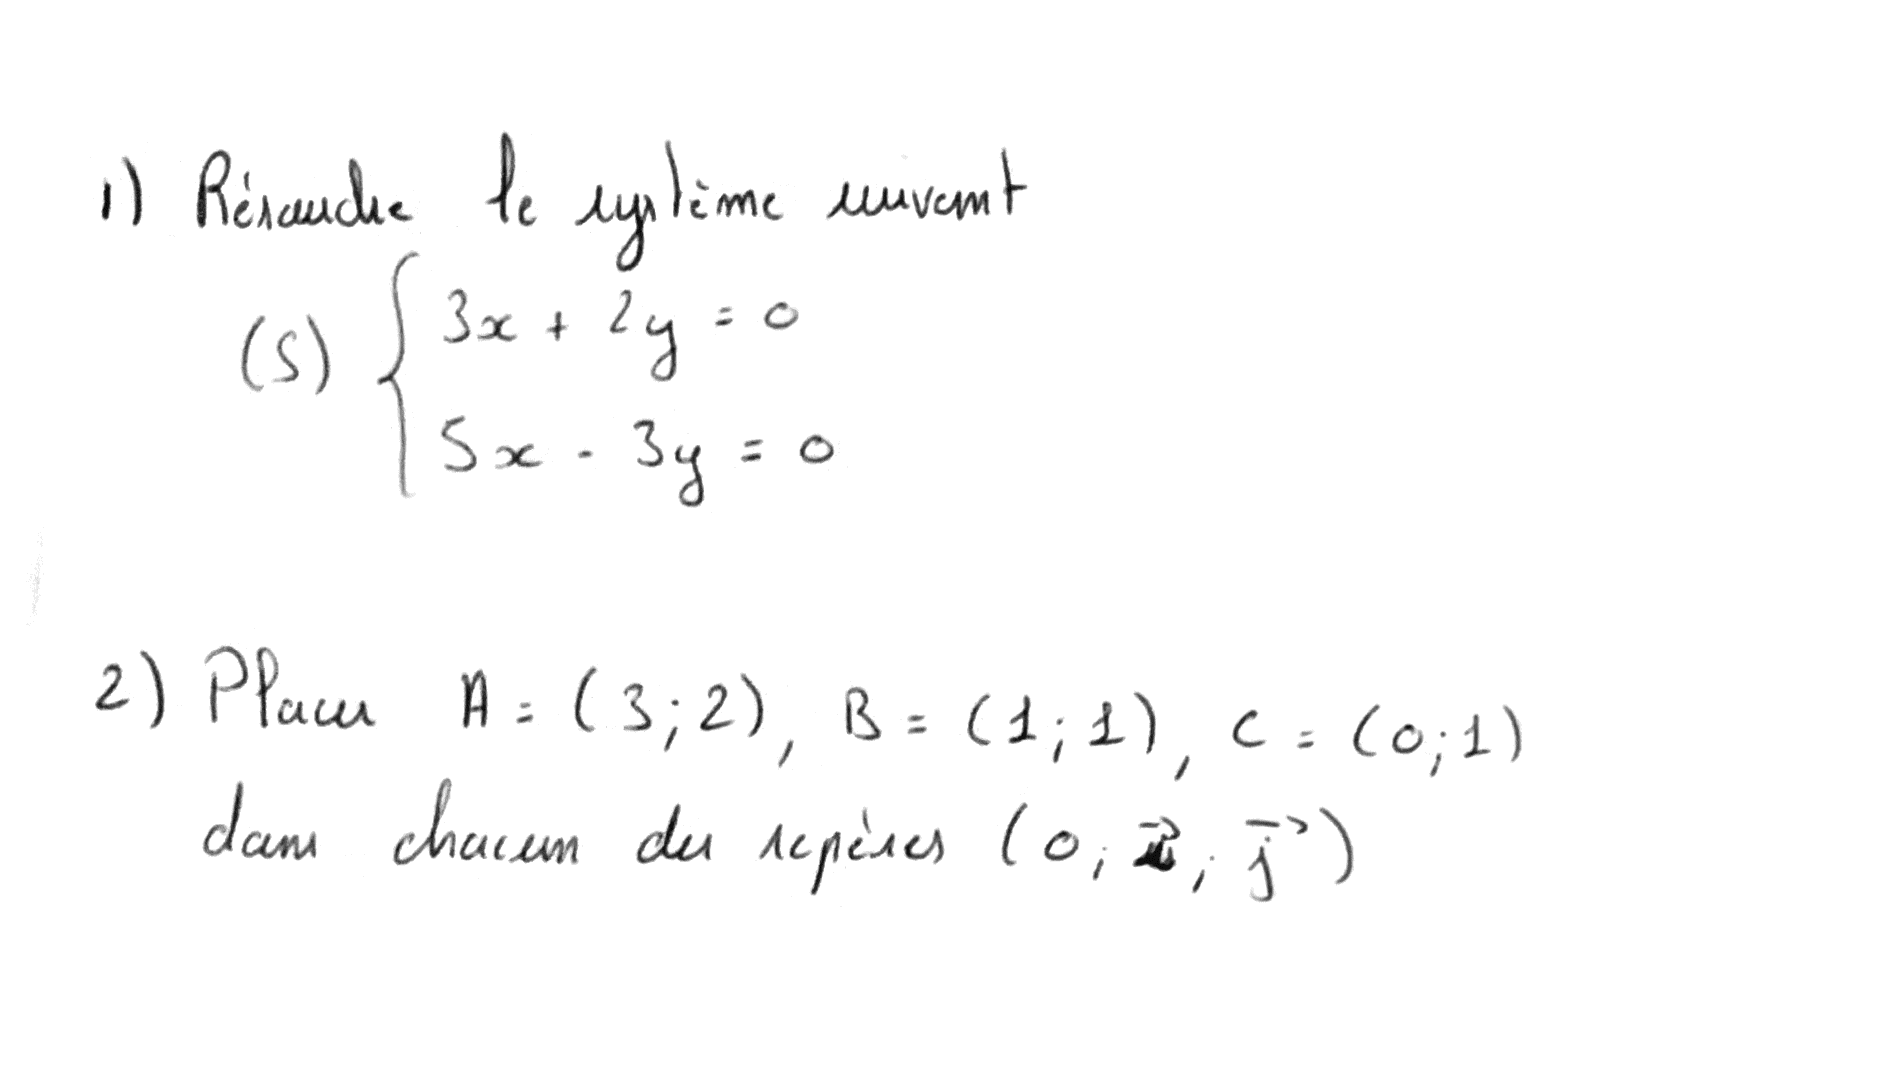 1) Résoudre le système suivant
(S) { 3x + 2y = 0
5x - 3y = 0
2) Placer A = (3;2), B = (1;1), C = (0;1)
dans chacun des repères (0; i⃗; j⃗)